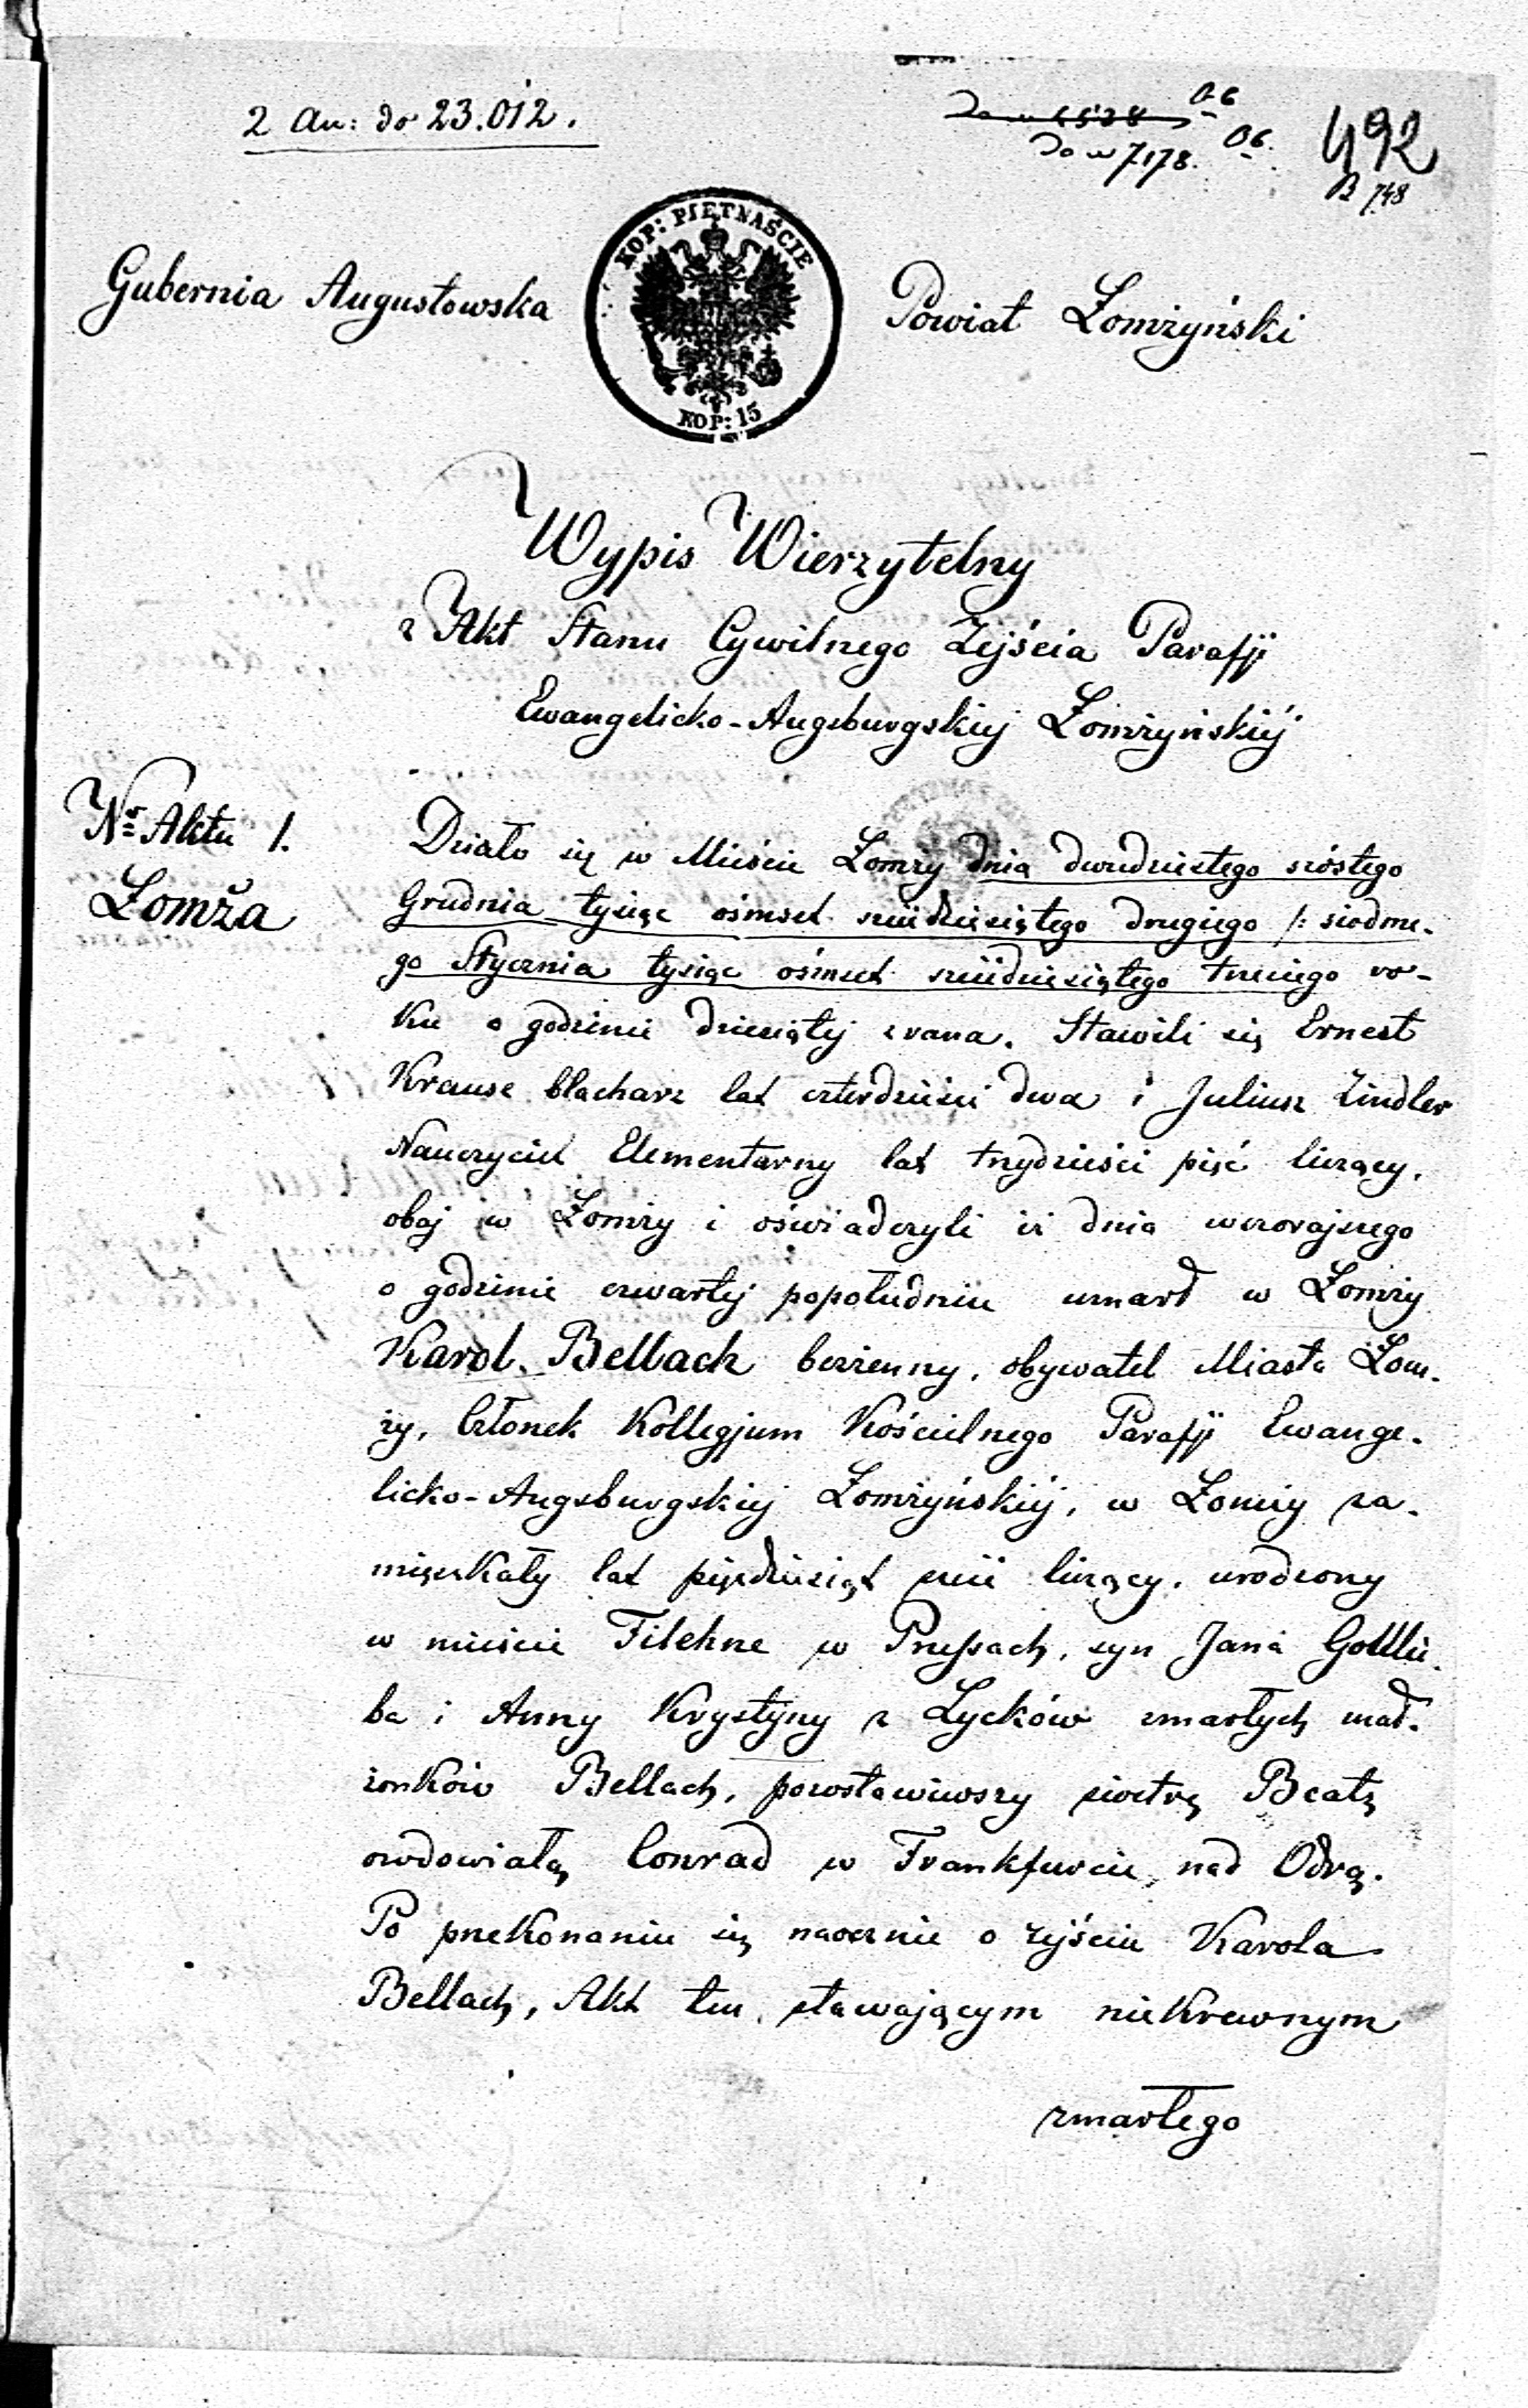 2 an: do 23.012.
Do w 6528 O6
Do w 7178. O6.
492
B 748
KOP: PIĘTNAŚCIE
KOP: 15
Gubernia Augustowska
Powiat Łomżyński
Wypis Wierzytelny
z Akt Stanu Cywilnego Zejścia Parafji
Ewangelicko-Augsburgskiej Łomżyńskiej
Nr Aktu 1.
Łomża
Działo się w Mieście Łomży dnia dwudziestego szóstego
Grudnia tysiąc ośmset sześćdziesiątego drugiego /: siodme-
go Stycznia tysiąc ośmset sześćdziesiątego trzeciego ro-
ku o godzinie dziesiątej z rana. Stawili się Ernest
Krause blacharz lat czterdzieści dwa i Juliusz Zindler
Nauczyciel Elementarny lat trzydzieści pięć liczący,
obaj w Łomży i oświadczyli iż dnia wczorajszego
o godzinie czwartej popołudniu umarł w Łomży
Karol Bellach bezżenny, obywatel Miasta Łom-
ży, Członek Kollegjum Kościelnego Parafji Ewange-
licko-Augsburgskiej Łomżyńskiej, w Łomży za-
mięszkały lat pięćdziesiąt sześć liczący, urodzony
w mieście Filehne w Prussach, syn Jana Gottlie-
ba i Anny Krystyny z Lycków zmarłych mał-
żonków Bellach, pozostawiwszy siostrę Beatę
owdowiałą Conrad w Frankfurcie nad Odrą.
Po przekonaniu się naocznie o zejściu Karola
Bellach, Akt ten stawającym niekrewnym
zmarłego